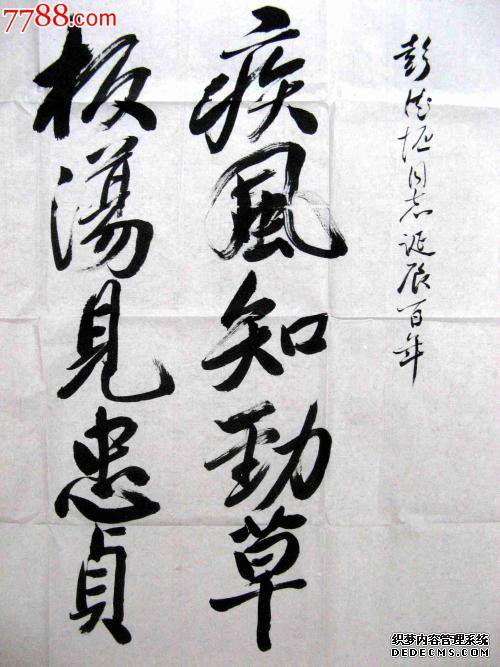 7788.com
彭德怀同志诞辰百年
疾風知勁草
板蕩見忠貞
织梦内容管理系统
DEDECMS.COM